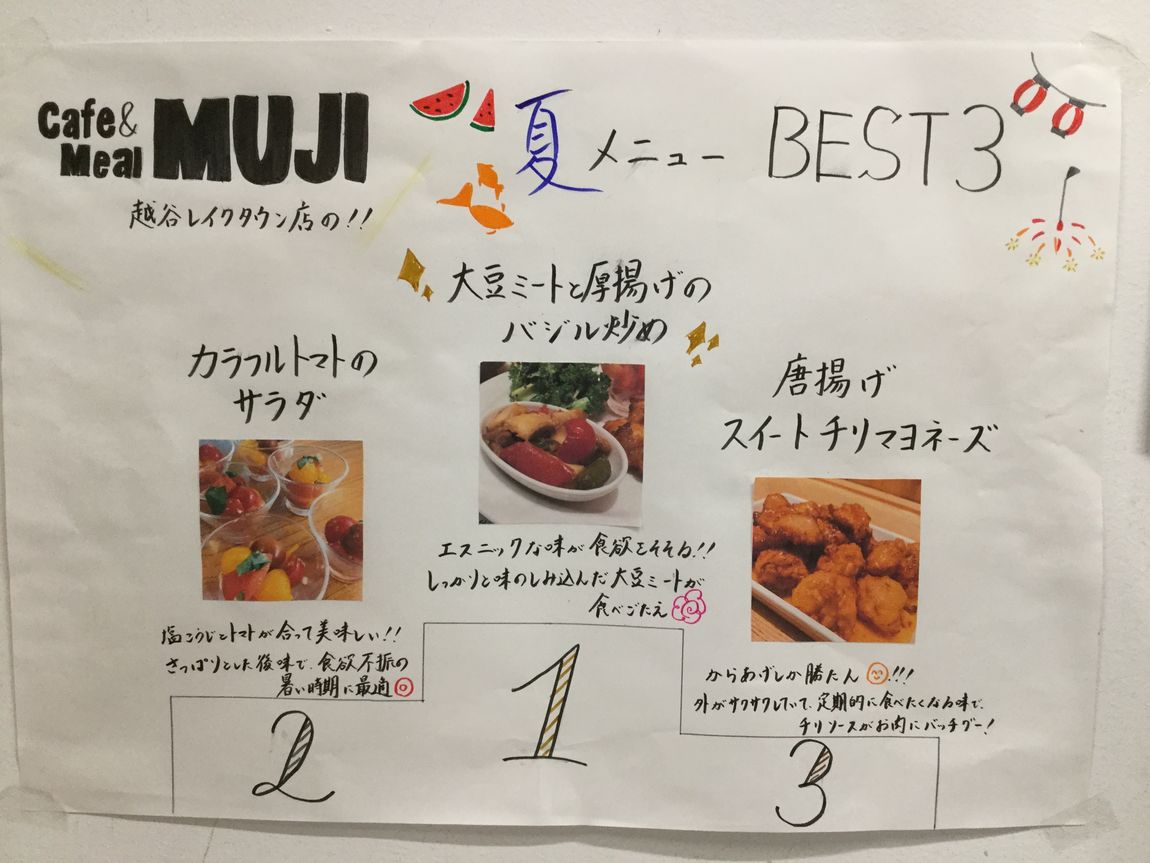 Cafe&
Meal MUJI
越谷レイクタウン店の!!
夏メニュー BEST3
大豆ミートと厚揚げの
バジル炒め
エスニックな味が食欲をそそる!!
しっかりと味のしみ込んだ大豆ミートが
食べごたえ
1
カラフルトマトの
サラダ
塩こうじとトマトが合って美味しい!!
さっぱりとした後味で、食欲不振の
暑い時期に最適
2
唐揚げ
スイートチリマヨネーズ
からあげしか勝たん!!!
外がサクサクしていて、定期的に食べたくなる味で、
チリソースがお肉にバッチグー!
3